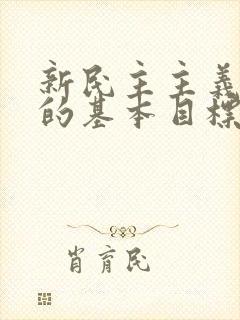 新民主主義
的基本目標
肖育民